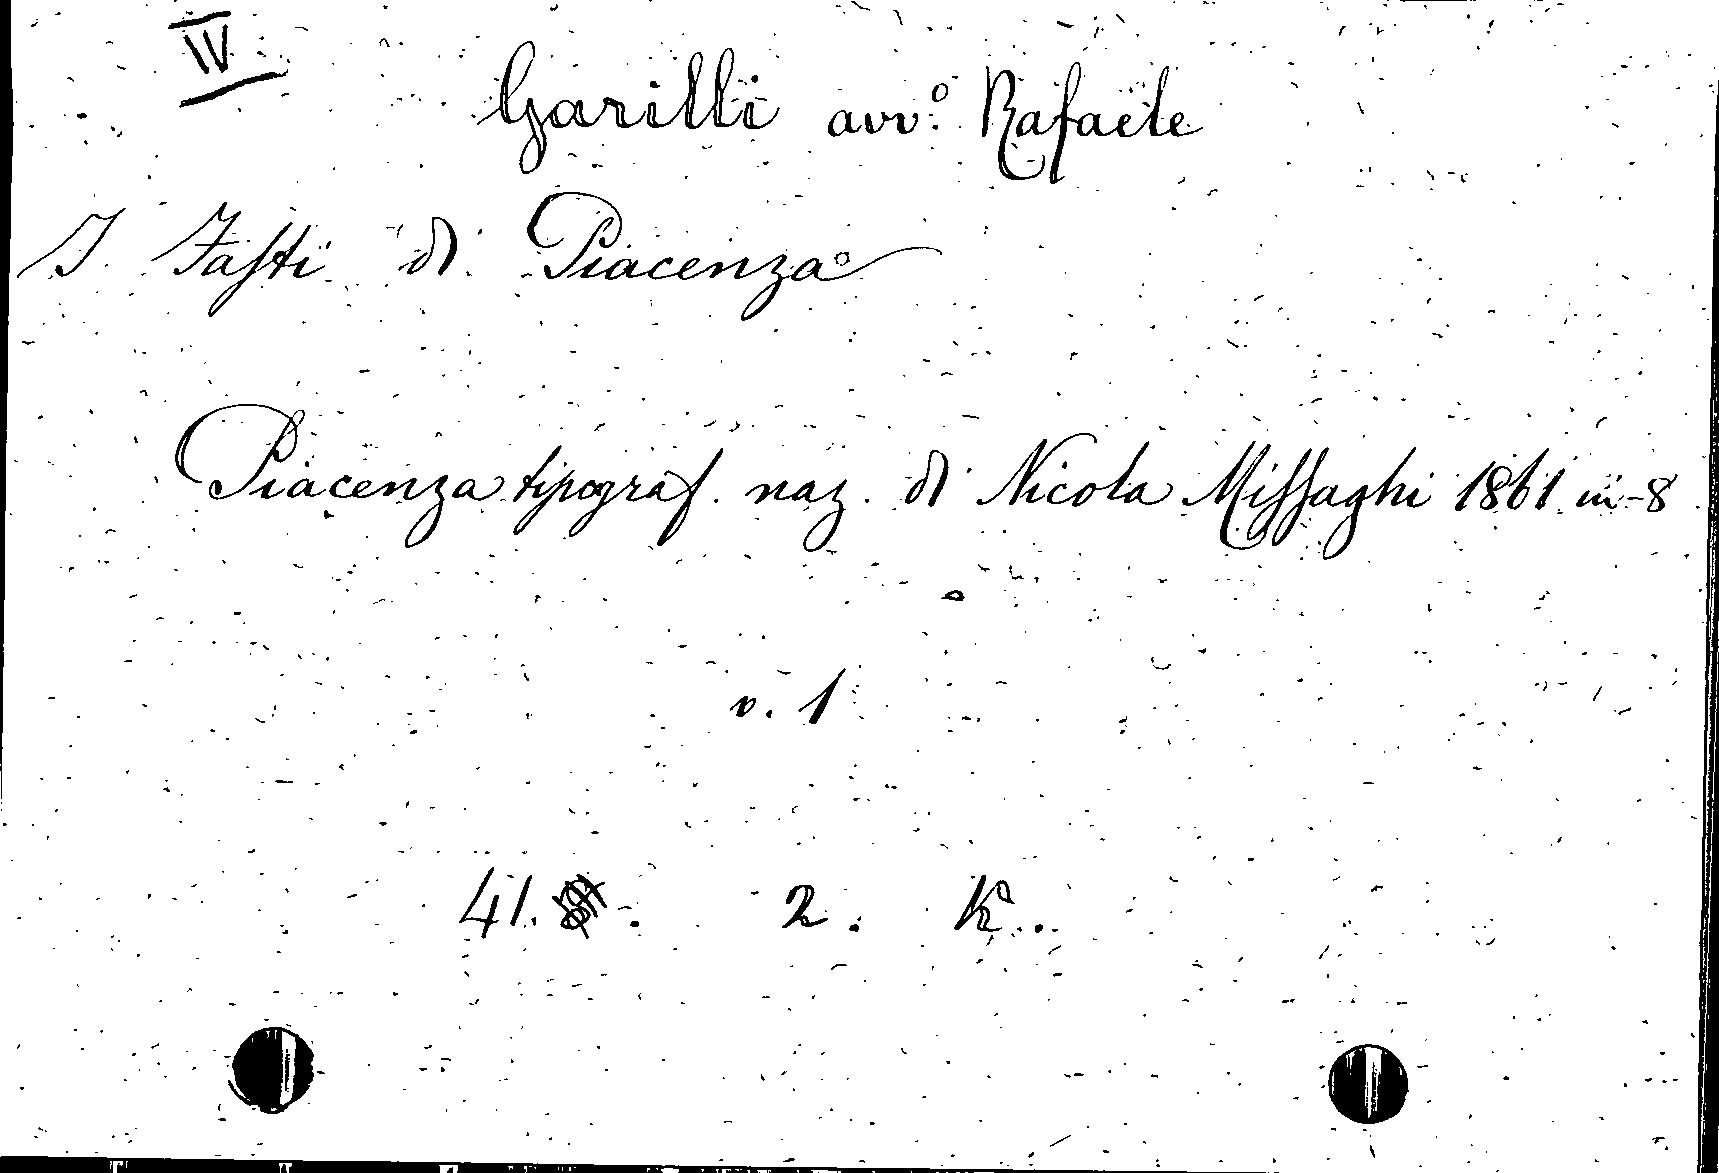 IV
Garilli avv.º Rafaele
I Fasti di Piacenza
Piacenza tipograf. naz. di Nicola Missaghi 1861 in-8
v. 1
41. . 2. K..